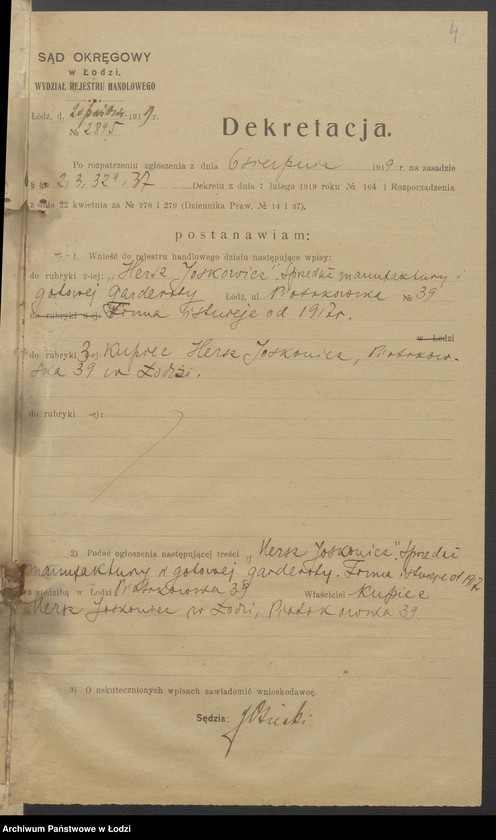 4
SĄD OKRĘGOWY
w Łodzi.
WYDZIAŁ REJESTRU HANDLOWEGO
Łódź, d. 1919 r.
№ 2895
Dekretacja.
Po rozpatrzeniu zgłoszenia z dnia 6 sierpnia 1919 r. na zasadzie
§ § 2, 3, 32a, 37 Dekretu z dnia 7 lutego 1919 roku № 164 i Rozporządzenia
z dnia 22 kwietnia za № 278 i 279 (Dziennika Praw. № 14 i 37).
postanawiam:
1. Wnieść do rejestru handlowego działu następujące wpisy:
do rubryki 2-iej: „Hersz Joskowicz". Sprzedaż manufaktury i
gotowej garderoby Łódź, ul. Piotrkowska № 39
do rubryki -ej Firma istnieje od 1912 r.
w Łodzi
do rubryki 3-ej: Kupiec Hersz Joskowicz, Piotrkow-
ska 39 w Łodzi.
do rubryki -ej:
2) Podać ogłoszenia następującej treści „Hersz Joskowicz". Sprzedaż
manufaktury i gotowej garderoby. Firma istnieje od 1912
z siedzibą w Łodzi Piotrkowska 39 Właściciel Kupiec
Hersz Joskowicz w Łodzi, Piotrkowska 39.
3) O uskutecznionych wpisach zawiadomić wnioskodawcę.
Sędzia:
Archiwum Państwowe w Łodzi